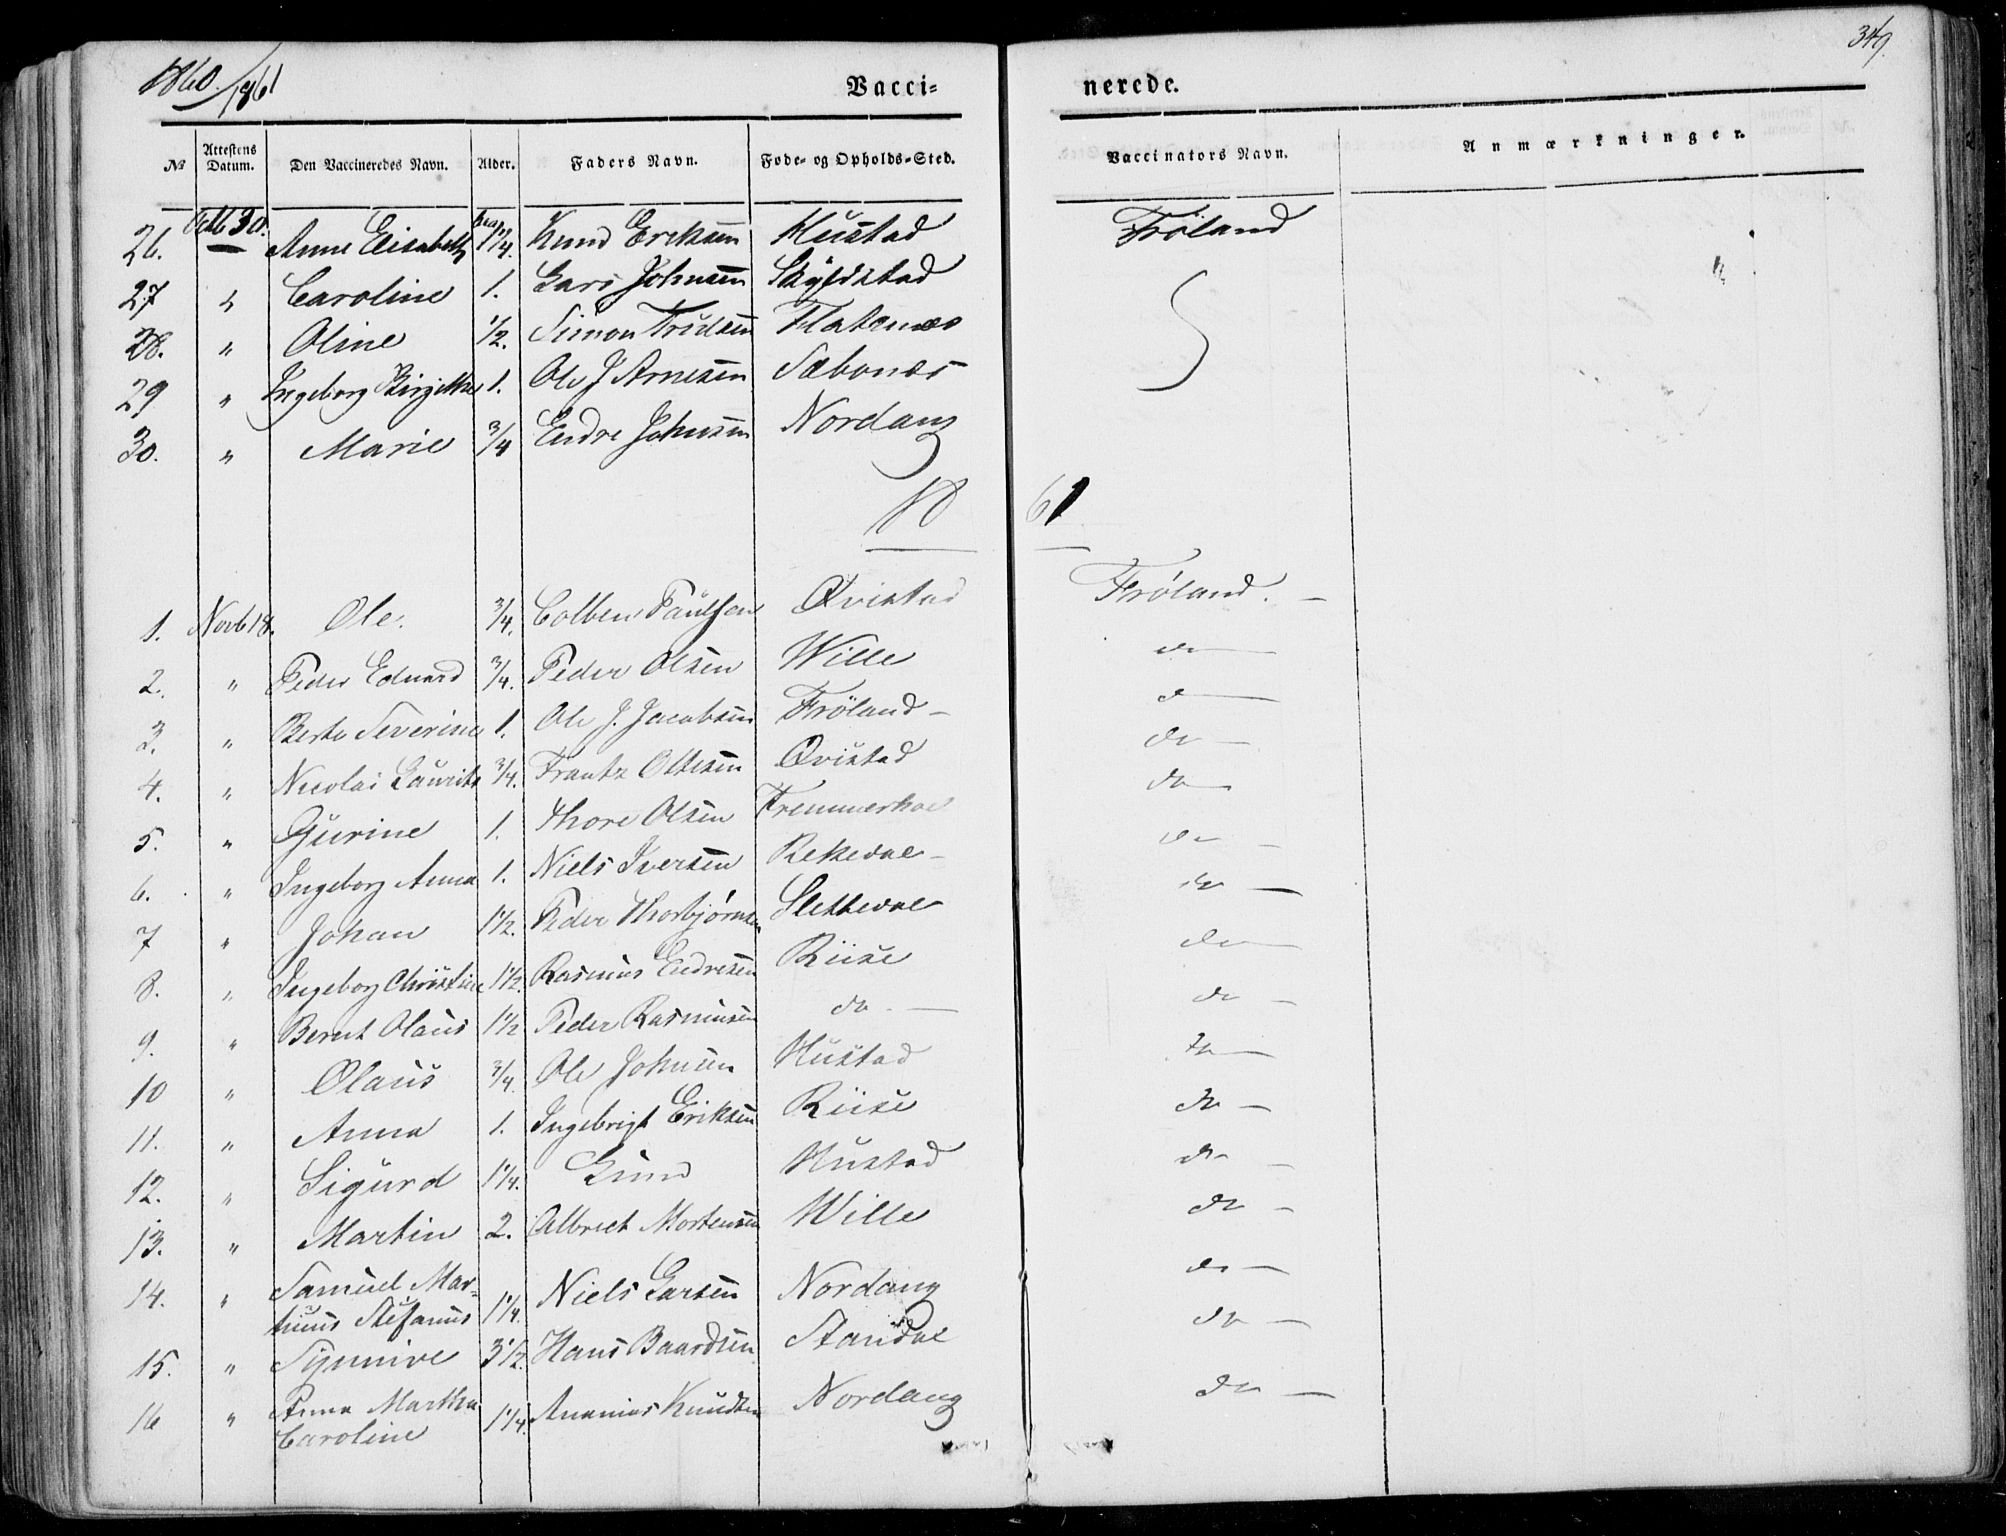 1860/1861
349.
Vacci- nerede.
№ Attestens Datum. Den Vaccineredes Navn. Alder. Faders Navn. Føde- og Opholds-Sted. Vaccinators Navn. Anmærkninger.
26. 30. Anne Elisabeth 1/4. Knud Eriksen Hustad Fröland
27 " Caroline 1. Lars Johnsen Skyldstad
28. " Oline 1/2. Simon Flatenæs
29 " Ingeborg Birgitte 1. Ole J Arnesen Sæbonæs
30. " Marie 3/4 Endre Johnsen Nordang
18 61
1. Novb 18. Ole. 3/4. Colben Paulsen Qvistad Frøland. —
2. " Peder Eduard 3/4. Peder Olsen Wille do —
3. " Berte Severine 1. Ole J. Jacobsen Fröland — d —
4. " Nicolai Laurits 3/4. Frantz Ottesen Qvistad do —
5. " Gurine 1. Thore Olsen do —
6. " Ingeborg Anna 1. Niels Iversen Rekedal — do —
7 " Johan 1 1/2. Peder Thorbjørnsen Slettedal do —
8. " Ingeborg Christine 1 1/2. Rasmus Endresen Riise do —
9. " Bernt Olaus 1 1/2 Peder Rasmusen do. — do —
10 " Olaus 3/4. Ole Johnsen Hustad do —
11. " Anna 1. Ingebrigt Eriksen Riise do —
12. " Sigurd 1 1/4. Hustad do —
13. " Martin 2. Albrect Mortensen Wille do —
14. " Samuel Mar-
tinus Stefanus 1 1/4. Niels Larsen Nordang do —
15. " Synnive 3 1/2. Hans Baardsen Standal do —
16 " Anna Martha
Caroline 1 1/4. Ananias Knudsen Nordang do —